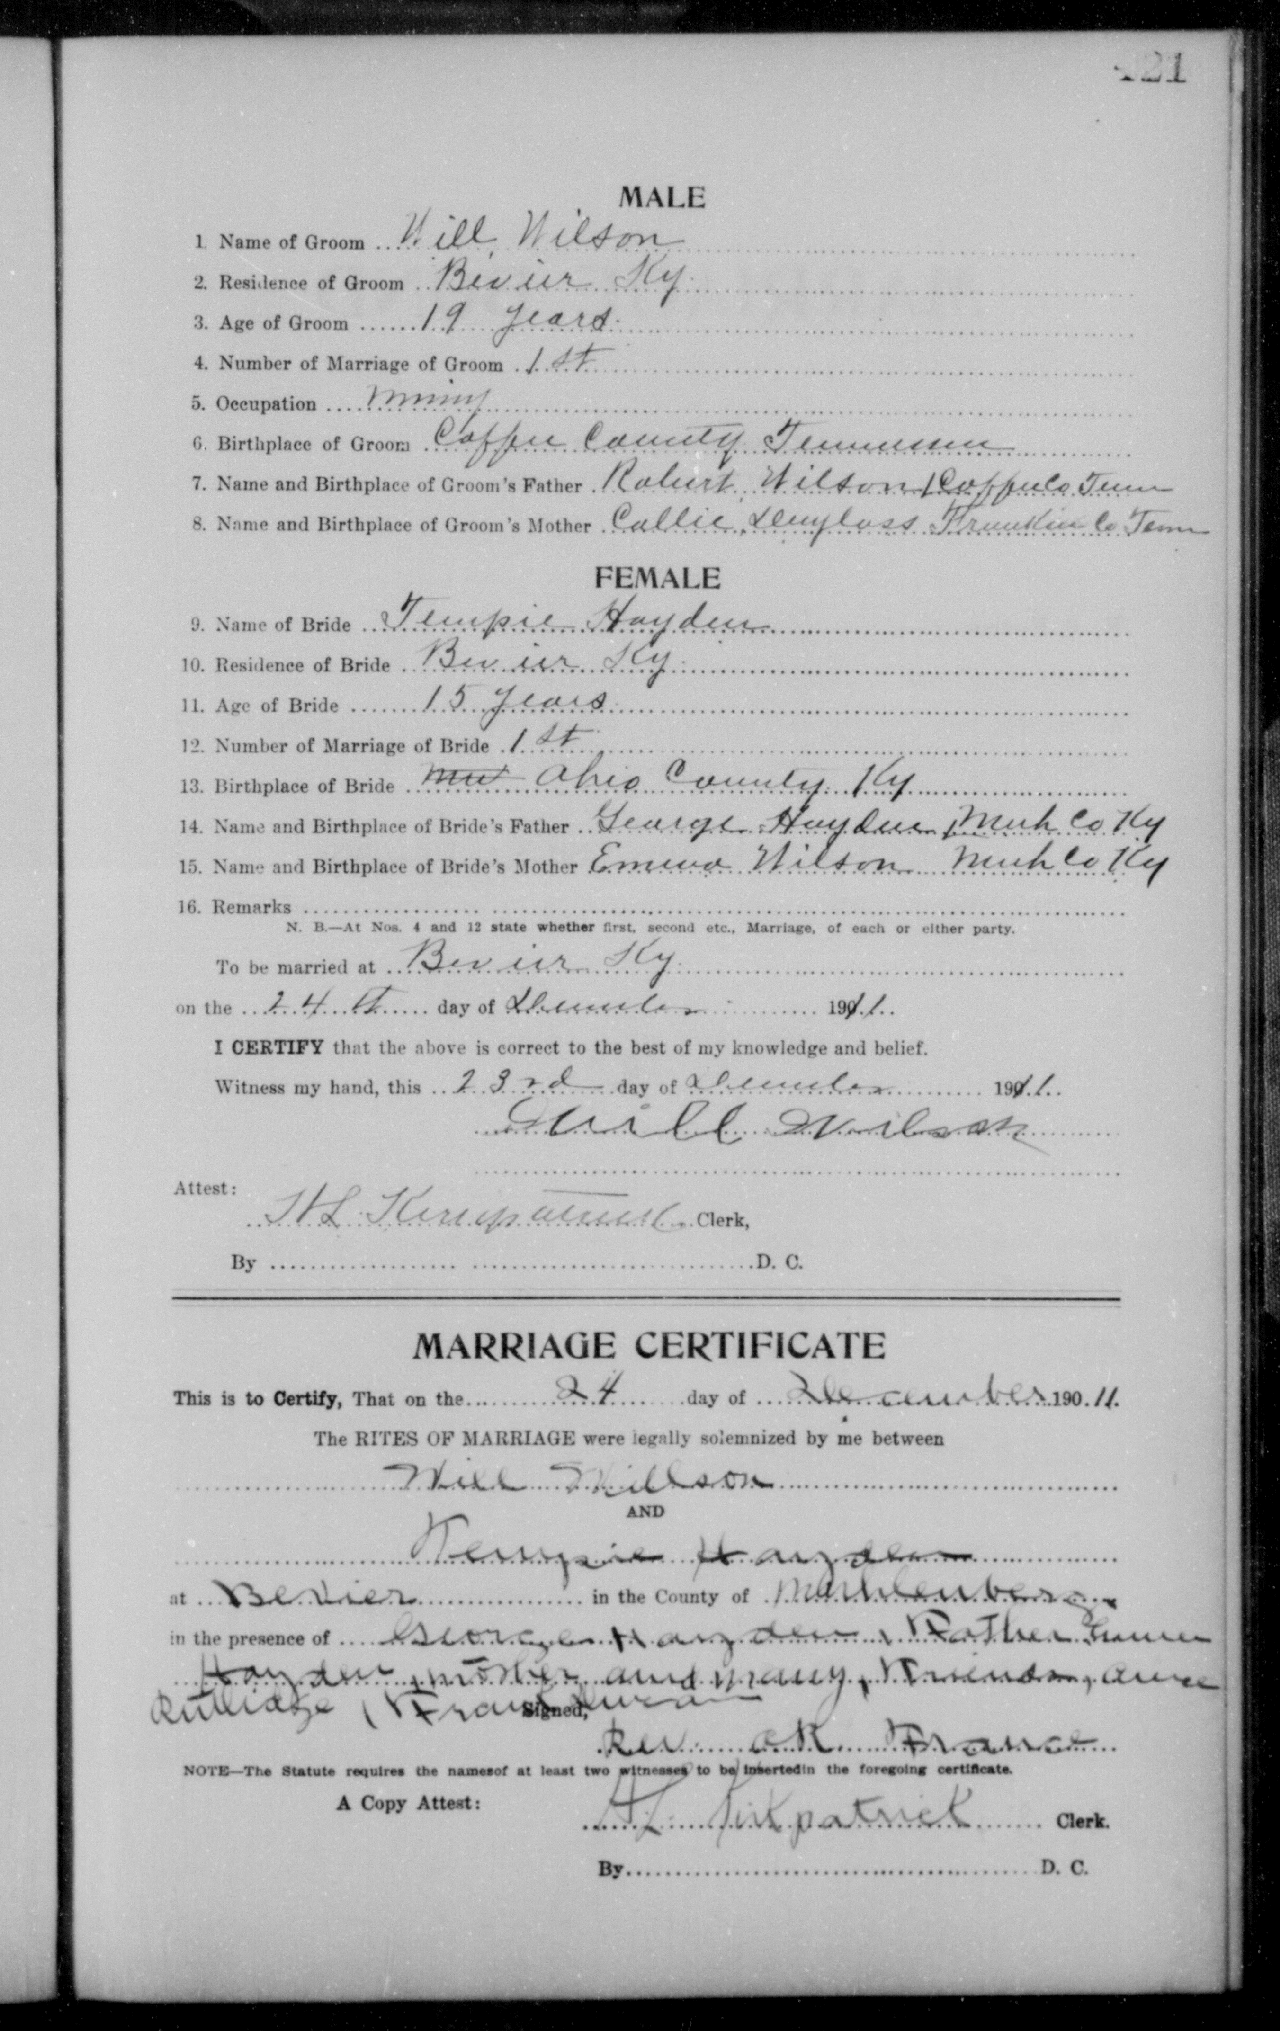 421
MALE
1. Name of Groom Will Wilson
2. Residence of Groom Bevier Ky.
3. Age of Groom 19 years
4. Number of Marriage of Groom 1st
5. Occupation Mining
6. Birthplace of Groom Coffee County Tennessee
7. Name and Birthplace of Groom's Father Robert Wilson, Coffee Co Tenn
8. Name and Birthplace of Groom's Mother Callie Douglass Franklin Co Tenn
FEMALE
9. Name of Bride Tempie Hayden
10. Residence of Bride Bevier Ky.
11. Age of Bride 15 years
12. Number of Marriage of Bride 1st
13. Birthplace of Bride Ohio County Ky
14. Name and Birthplace of Bride's Father George Hayden, Muh Co Ky
15. Name and Birthplace of Bride's Mother Emma Wilson Muh Co Ky
16. Remarks
N. B.—At Nos. 4 and 12 state whether first, second etc., Marriage, of each or either party.
To be married at Bevier Ky.
on the 24th day of December 1911.
I CERTIFY that the above is correct to the best of my knowledge and belief.
Witness my hand, this 23rd day of December 1911.
Will Wilson
Attest:
H L Kirkpatrick Clerk,
By D. C.
MARRIAGE CERTIFICATE
This is to Certify, That on the 24 day of December 190 11.
The RITES OF MARRIAGE were legally solemnized by me between
Will Willson
AND
Tempie Hayden
at Bevier in the County of Muhlenberg
in the presence of George Hayden, Father
Hayden, mother and many, Friends,
Rutledge, Frank
Signed,
Rev. France
NOTE—The Statute requires the namesof at least two witnesses to be insertedin the foregoing certificate.
A Copy Attest:
H L Kirkpatrick Clerk.
By D. C.